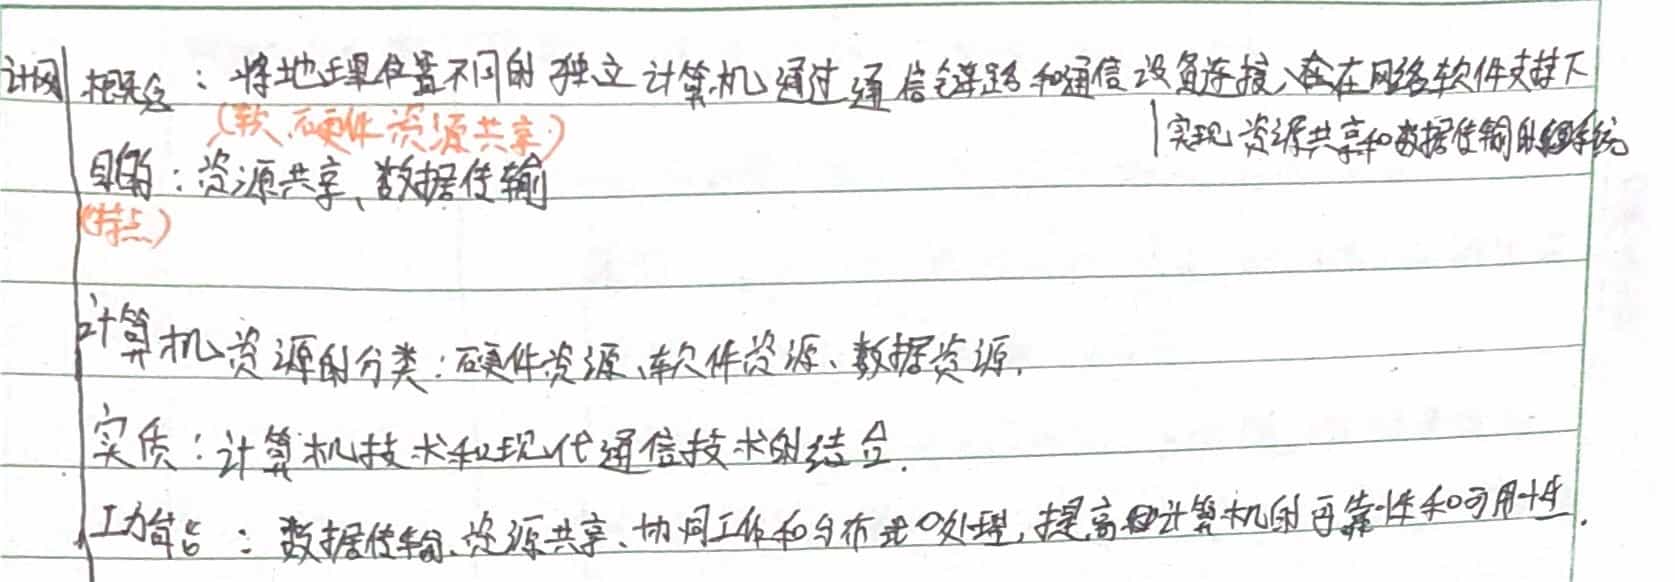 计网 概念：将地理位置不同的独立计算机通过通信链路和通信设备连接、在网络软件支持下
实现资源共享和数据传输的系统
(软、硬件资源共享)
目的：资源共享、数据传输
(特点)
计算机资源的分类：硬件资源、软件资源、数据资源.
实质：计算机技术和现代通信技术的结合.
功能：数据传输、资源共享、协同工作和分布式处理,提高计算机的可靠性和可用性.